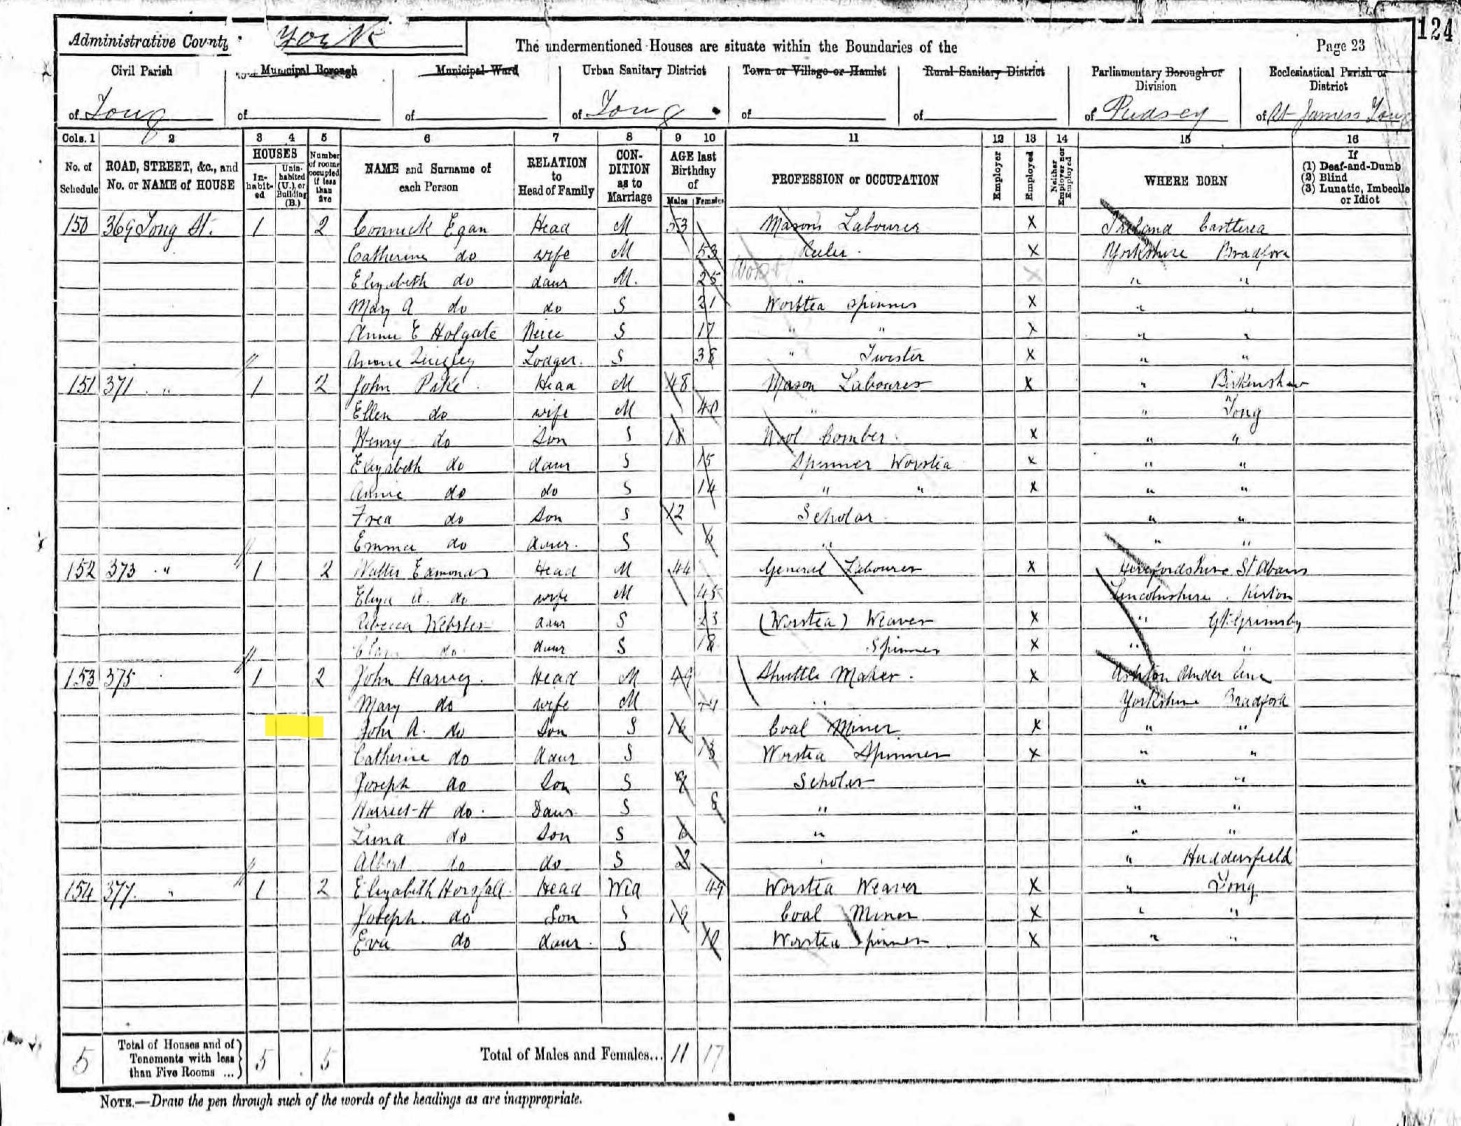 124
Administrative County York
The undermentioned Houses are situate within the Boundaries of the
Page 23
Civil Parish Municipal Borough Municipal Ward Urban Sanitary District Town or Village or Hamlet Rural Sanitary District Parliamentary Borough or Division Ecclesiastical Parish or District
of Tong of of of Tong of of of Pudsey of St James Tong
Cols. 1 2 3 4 5 6 7 8 9 10 11 12 13 14 15 16
No. of Schedule ROAD, STREET, &c., and No. or NAME of HOUSE HOUSES Inhabited Uninhabited (U.), or Building (B.) Number of rooms occupied if less than five NAME and Surname of each Person RELATION to Head of Family CONDITION as to Marriage AGE last Birthday of Males Females PROFESSION or OCCUPATION Employer Employed Neither Employer nor Employed WHERE BORN If (1) Deaf-and-Dumb (2) Blind (3) Lunatic, Imbecile or Idiot
150 369 Tong St. 1 2 Egan Head M 53 Masons Labourer X Ireland Castlerea
Catherine do wife M 53 Reeler X Yorkshire Bradford
Elizabeth do daur M. 25 " X " "
Mary A do do S 21 Worsted Spinner X " "
Annie E Holgate Neice S 17 " " X " "
Annie Quigley Lodger S 38 " Twister X " "
151 371 " 1 2 John Head M 48 Mason Labourer X " Birkenshaw
Ellen do wife M 40 " " Tong
Henry do Son S 18 Wool Comber X " "
Elizabeth do daur S 15 Spinner Worsted X " "
Annie do do S 14 " " X " "
Fred do Son S 12 Scholar " "
Emma do daur. S " " "
152 373 " 1 2 Walter Edmonds Head M 44 General Labourer X St Albans
Eliza A. do wife M 45 Lincolnshire Kirton
Rebecca Webster daur S 23 (Worsted) Weaver X " Gt Grimsby
do daur S 18 Spinner X " "
153 375 1 2 John Harvey Head M 49 Shuttle Maker. X Ashton Under Line
Mary do wife M " Yorkshire Bradford
John A. do Son S 16 Coal Miner X " "
Catherine do daur S 13 Worsted Spinner X " "
Joseph do Son S 9 Scholar " "
Harriet H do Daur S 8 " " "
do Son S 6 " " "
Albert do do S 2 " Huddersfield
154 377 " 1 2 Elizabeth Horsfall Head Wid 49 Worsted Weaver X " Tong
Joseph do Son S 19 Coal Miner X " "
Eva do daur S Worsted Spinner X " "
5 Total of Houses and of Tenements with less than Five Rooms ... 5 5 Total of Males and Females... 11 17
NOTE.—Draw the pen through such of the words of the headings as are inappropriate.